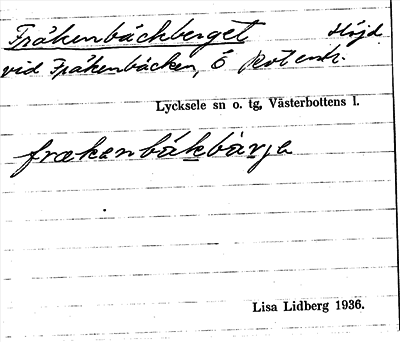 Fräkenbäckberget Höjd
vid Fräkenbäcken, Ö
Lycksele sn o. tg, Västerbottens l.
frækanbäkbärje
Lisa Lidberg 1936.